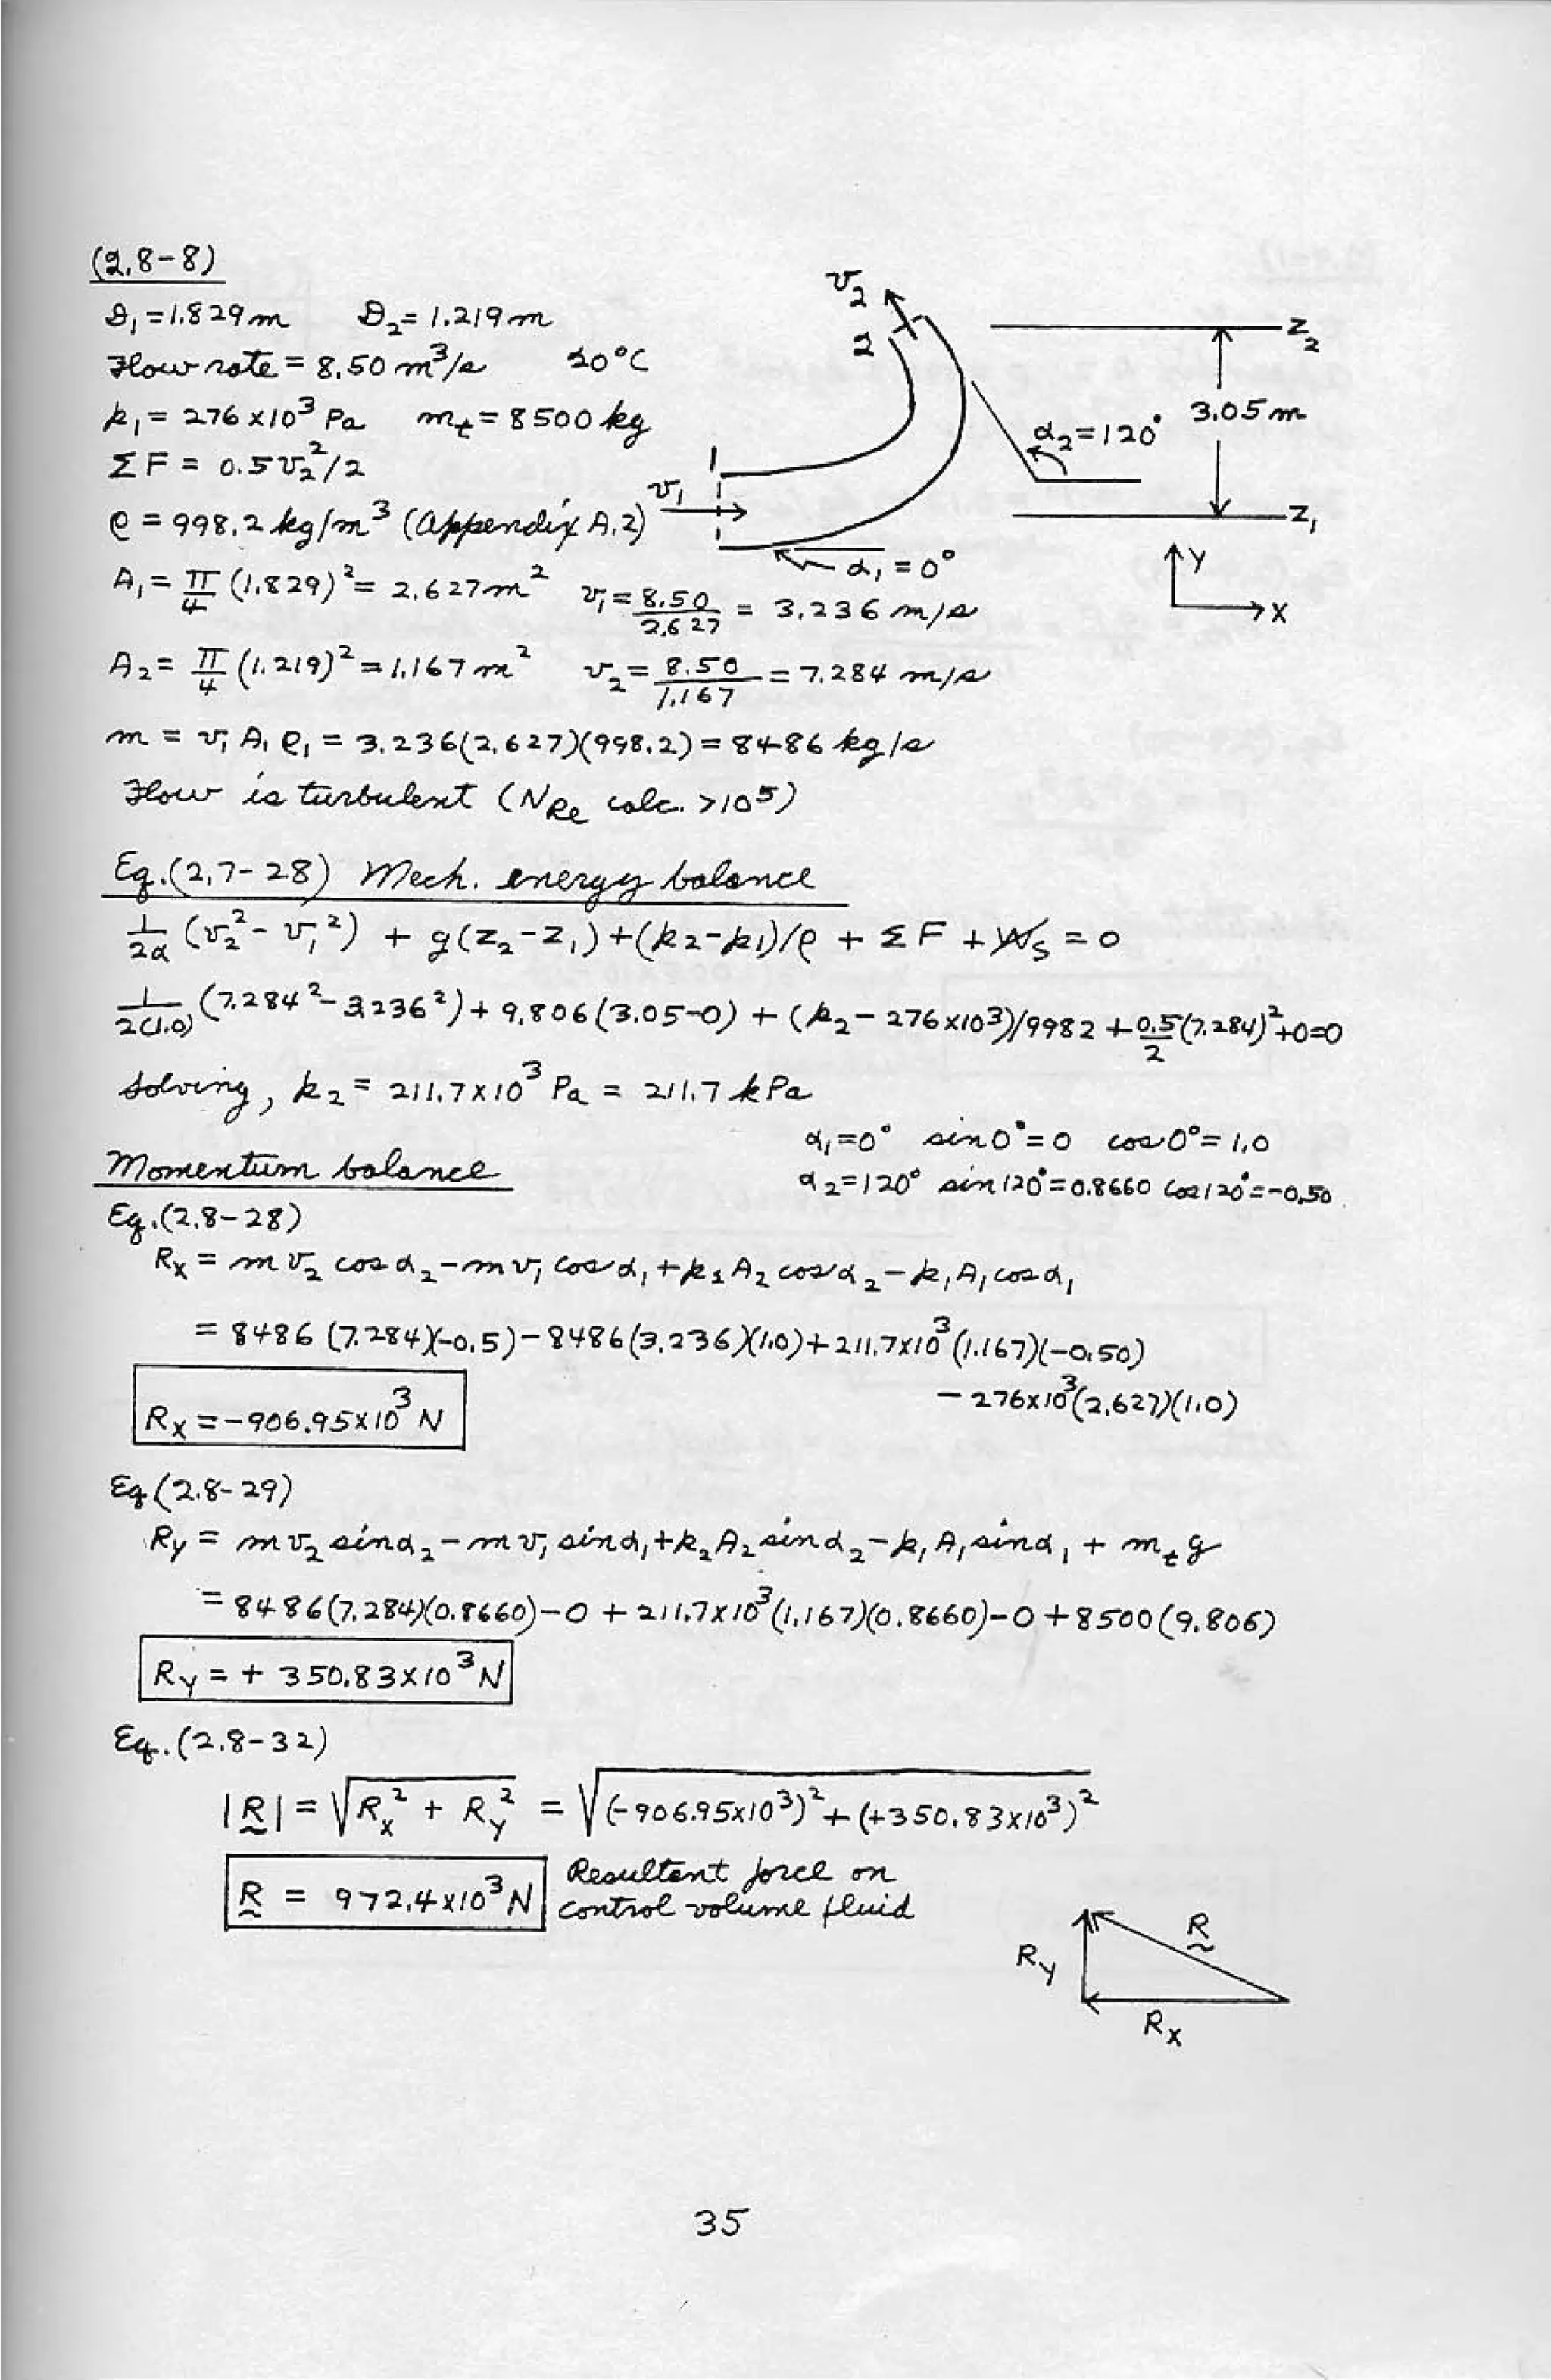 (2.8-8)
D₁ = 1.829 m D₂ = 1.219 m
Flow rate = 8.50 m³/s 20°C
p₁ = 276 x10³ Pa m_t = 8500 kg
ΣF = 0.5 v₂²/2
ρ = 998.2 kg/m³ (Appendix A.2)
v₂
2
1
v₁
1
α₁ = 0°
α₂=120°
z₂
3.05 m
z₁
Y
X
A₁ = π/4 (1.829)² = 2.627 m² v₁ = 8.50/2.627 = 3.236 m/s
A₂ = π/4 (1.219)² = 1.167 m² v₂ = 8.50/1.167 = 7.284 m/s
m = v₁ A₁ ρ₁ = 3.236(2.627)(998.2) = 8486 kg/s
Flow is turbulent (N_Re calc. >10⁵)
Eq.(2.7-28) Mech. energy balance
1/2α (v₂² - v₁²) + g(z₂-z₁) + (p₂-p₁)/ρ + ΣF + W_S = 0
1/2(1.0) (7.284² - 3.236²) + 9.806(3.05-0) + (p₂ - 276x10³)/9982 + 0.5/2 (7.284)² +0=0
Solving, p₂ = 211.7x10³ Pa = 211.7 kPa
α₁=0° sin 0°=0 cos 0°=1.0
Momentum balance α₂=120° sin 120°=0.8660 cos 120°=-0.50
Eq.(2.8-28)
R_x = m v₂ cos α₂ - m v₁ cos α₁ + p₂ A₂ cos α₂ - p₁ A₁ cos α₁
= 8486 (7.284)(-0.5) - 8486(3.236)(1.0) + 211.7x10³(1.167)(-0.50)
- 276x10³(2.627)(1.0)
R_x = -906.95x10³ N
Eq.(2.8-29)
R_y = m v₂ sin α₂ - m v₁ sin α₁ + p₂ A₂ sin α₂ - p₁ A₁ sin α₁ + m_t g
= 8486(7.284)(0.8660) - 0 + 211.7x10³(1.167)(0.8660) - 0 + 8500(9.806)
R_y = + 350.83x10³ N
Eq.(2.8-32)
|R| = √(R_x² + R_y²) = √((-906.95x10³)² + (+350.83x10³)²)
R = 972.4x10³ N Resultant force on
control volume fluid
R_y
R
R_x
35